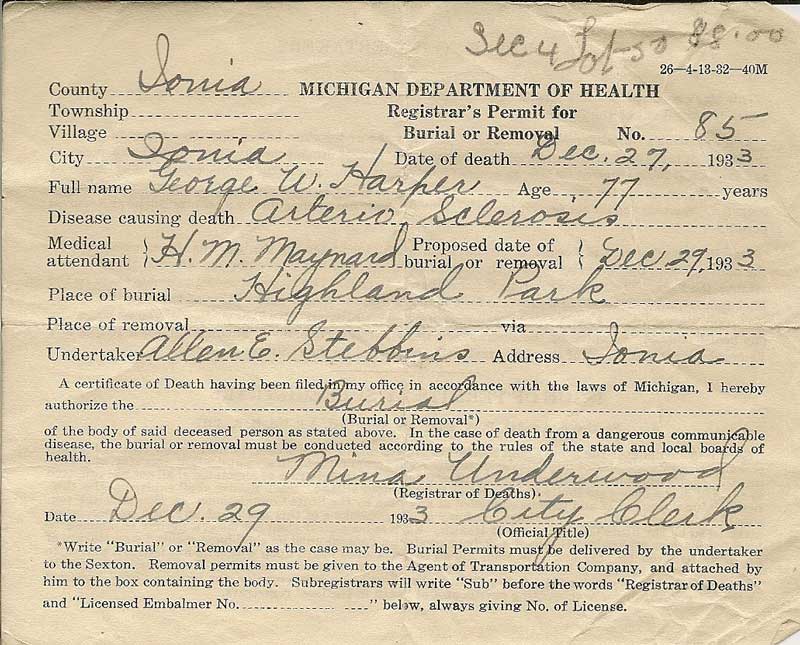 Sec 4 Lot 50 $8.00
26—4-13-32—40M
County Ionia MICHIGAN DEPARTMENT OF HEALTH
Township Registrar's Permit for
Village Burial or Removal No. 85
City Ionia Date of death Dec. 27, 1933
Full name George W. Harper Age 77 years
Disease causing death Arterio Sclerosis
Medical attendant } H. M. Maynard Proposed date of burial or removal } Dec 29, 1933
Place of burial Highland Park
Place of removal via
Undertaker Allen E. Stebbins Address Ionia
A certificate of Death having been filed in my office in accordance with the laws of Michigan, I hereby
authorize the Burial
(Burial or Removal*)
of the body of said deceased person as stated above. In the case of death from a dangerous communicable
disease, the burial or removal must be conducted according to the rules of the state and local boards of
health.
Mina Underwood
(Registrar of Deaths).
Date Dec. 29 1933 City Clerk
(Official Title)
*Write "Burial" or "Removal" as the case may be. Burial Permits must be delivered by the undertaker
to the Sexton. Removal permits must be given to the Agent of Transportation Company, and attached by
him to the box containing the body. Subregistrars will write "Sub" before the words "Registrar of Deaths"
and "Licensed Embalmer No. " below, always giving No. of License.